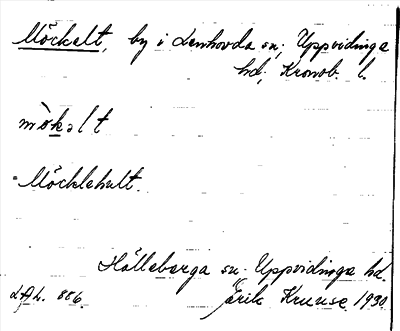 Möckelt, by i Lenhovda sn; Uppvidinge
hd, Kronob. l.
mò̀kəlt
Möcklehult.
Hälleberga sn. Uppvidinge hd.
LAL. 886. Erik Kruuse 1930